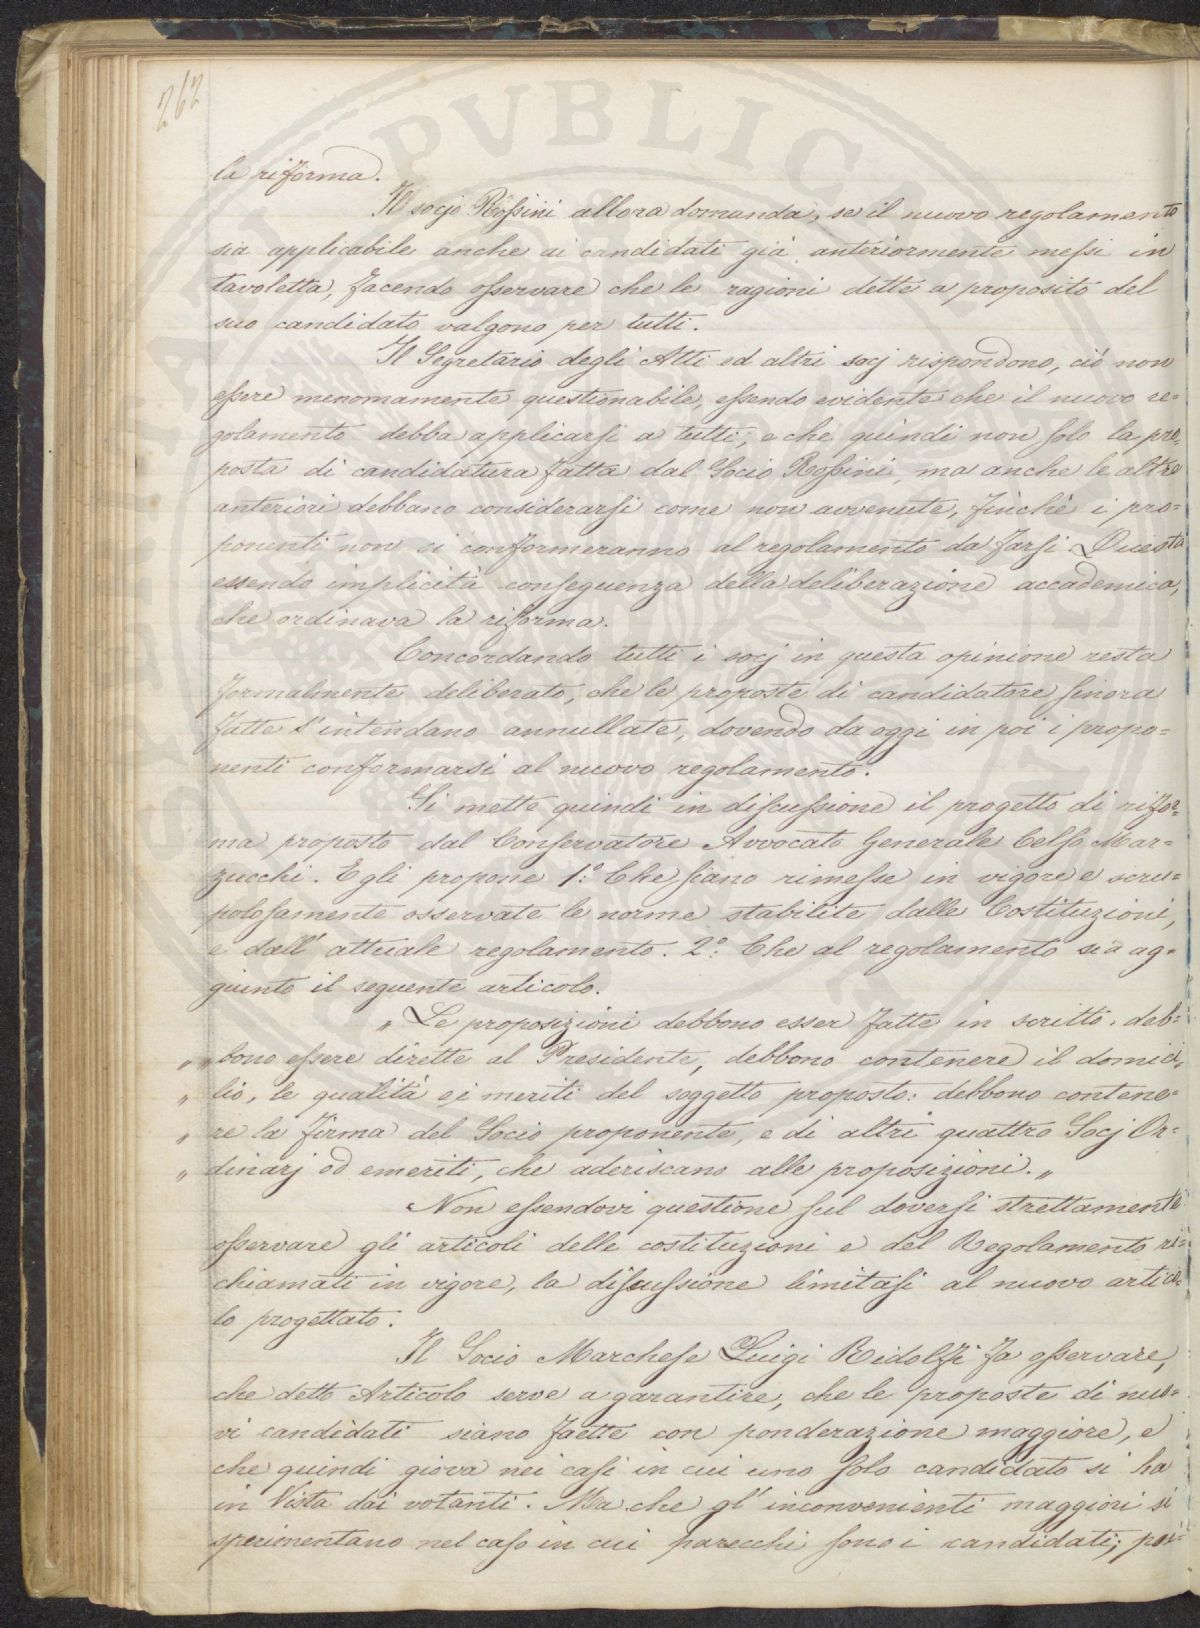 262
la riforma.
Il socjo Rossini allora domanda, se il nuovo regolamento
sia applicabile anche ai candidati già anteriormente messi in
tavoletta, facendo osservare che le ragioni dette a proposito del
suo candidato valgono per tutti.
Il Segretario degli Atti ed altri socj rispondono, ciò non
essere menomamente questionabile, essendo evidente che il nuovo re=
golamento debba applicarsi a tutti, e che quindi non solo la pro=
posta di candidatura fatta dal Socio Rossini, ma anche le altre
anteriori debbano considerarsi come non avvenute, finchè i pro=
ponenti non si conformeranno al regolamento da farsi Questa
essendo implicita conseguenza della deliberazione accademica,
che ordinava la riforma.
Concordando tutti i socj in questa opinione resta
formalmente deliberato, che le proposte di candidatore finora
fatte s'intendano annullate, dovendo da oggi in poi i propo=
nenti conformarsi al nuovo regolamento.
Si mette quindi in discussione il progetto di rifor=
ma proposto dal Conservatore Avvocato Generale Celso Mar=
zucchi. Egli propone 1.° Che siano rimesse in vigore e scru=
polosamente osservate le norme stabilite dalle Costituzioni,
e dall' attuale regolamento. 2.° Che al regolamento sia ag=
giunto il seguente articolo.
„ Le proposizioni debbono esser fatte in scritto, deb=
„ „bono essere dirette al Presidente, debbono contenere il domici=
„ lio, le qualità e i meriti del soggetto proposto: debbono contene=
„ re la firma del Socio proponente, e di altri quattro Socj Or=
„ dinarj od emeriti, che aderiscano alle proposizioni. „
Non essendovi questione sul doversi strettamente
osservare gli articoli delle costituzioni e del Regolamento ri=
chiamati in vigore, la discussione limitasi al nuovo artico=
lo progettato.
Il Socio Marchese Luigi Ridolfi fa osservare,
che detto Articolo serve a garantire, che le proposte di nuo=
vi candidati siano faette con ponderazione maggiore, e
che quindi giova nei casi in cui uno solo candidato si ha
in vista dai votanti. Ma che gl' inconvenienti maggiori si
sperimentano nel caso in cui parecchi sono i candidati; poi=